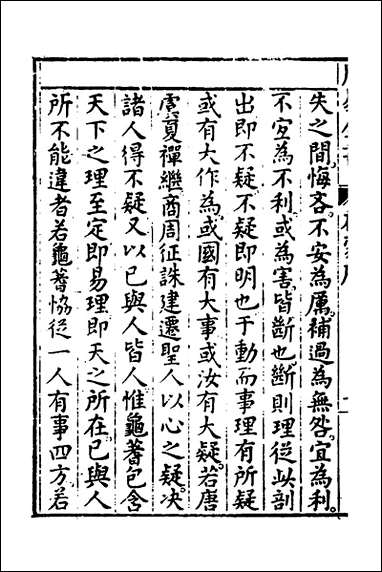 失之間。悔吝。不安為厲。補過為無咎。宜為利。
不宜為不利。或為害。皆斷也。斷則理從此剖
出即不疑。不疑即明也。于動而事理有所疑
或有大作為。或國有大事。或汝有大疑。若唐
虞夏禪繼。商周征誅建遷。聖人以心之疑。决
諸人得不疑。又以已與人皆人。惟龜蓍包含
天下之理至定。即易理。即天之所在。已與人
所不能違者若龜蓍恊從。一人有事四方若